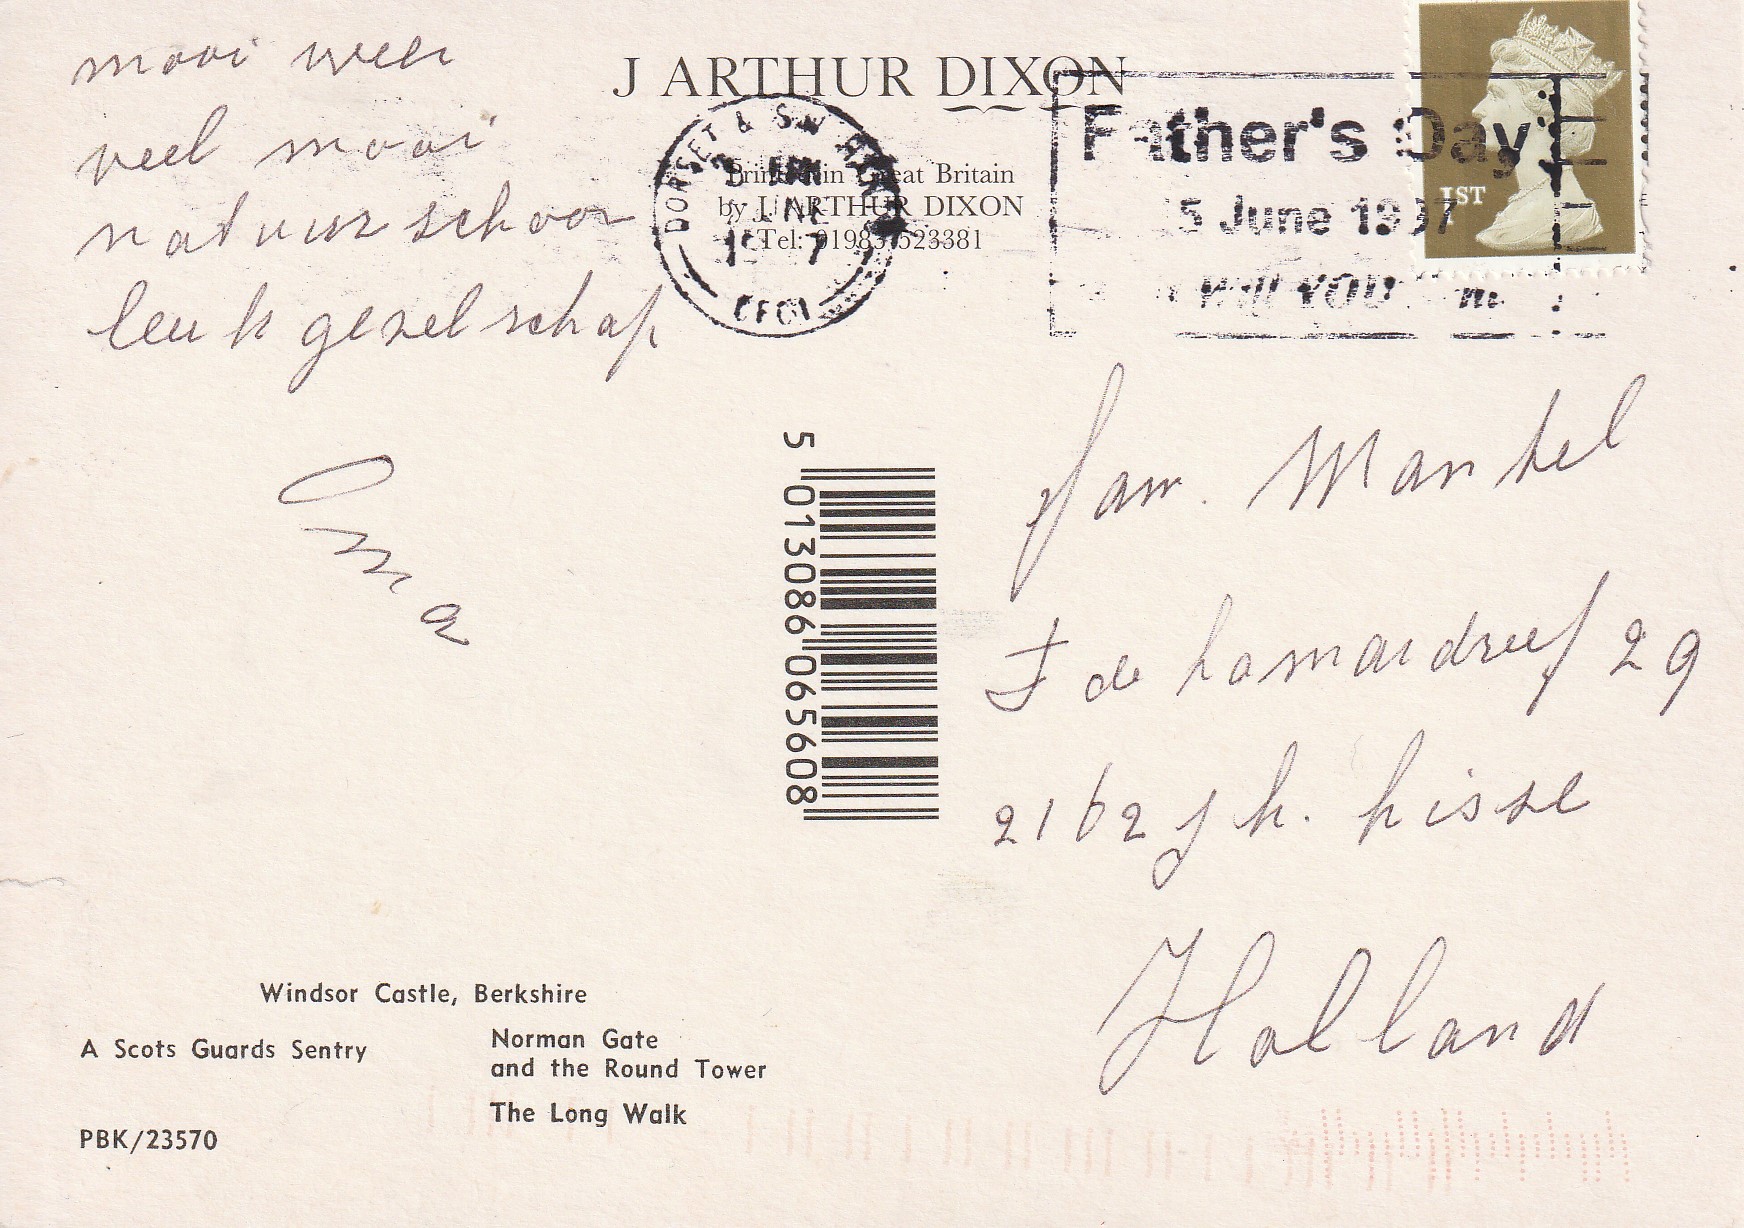 mooi weer
veel mooi
natuurschoon
leuk gezelschap
Oma
J ARTHUR DIXON
Printed in Great Britain
by J. ARTHUR DIXON
Tel: 01983 523381
DORSET & S.W.
JUN
Father's Day
5 June 1997
YOU
1ST
5 013086 065608
fam. Mantel
J de hamardreef 29
2162 J h. hisse
Holland
Windsor Castle, Berkshire
A Scots Guards Sentry
Norman Gate
and the Round Tower
The Long Walk
PBK/23570